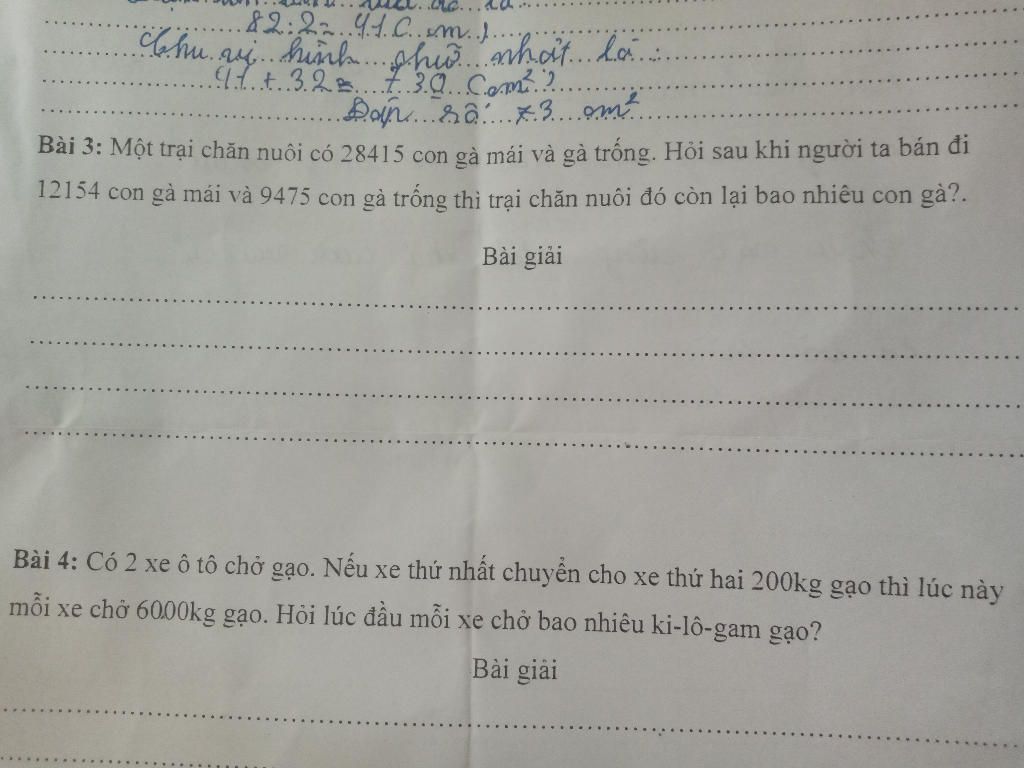 82:2= 41 (cm)
Chu vi hình chữ nhât là:
41 + 32 = 73 (cm²)
Đáp số: 73 cm²
Bài 3: Một trại chăn nuôi có 28415 con gà mái và gà trống. Hỏi sau khi người ta bán đi
12154 con gà mái và 9475 con gà trống thì trại chăn nuôi đó còn lại bao nhiêu con gà?.
Bài giải
Bài 4: Có 2 xe ô tô chở gạo. Nếu xe thứ nhất chuyển cho xe thứ hai 200kg gạo thì lúc này
mỗi xe chở 6000kg gạo. Hỏi lúc đầu mỗi xe chở bao nhiêu ki-lô-gam gạo?
Bài giải